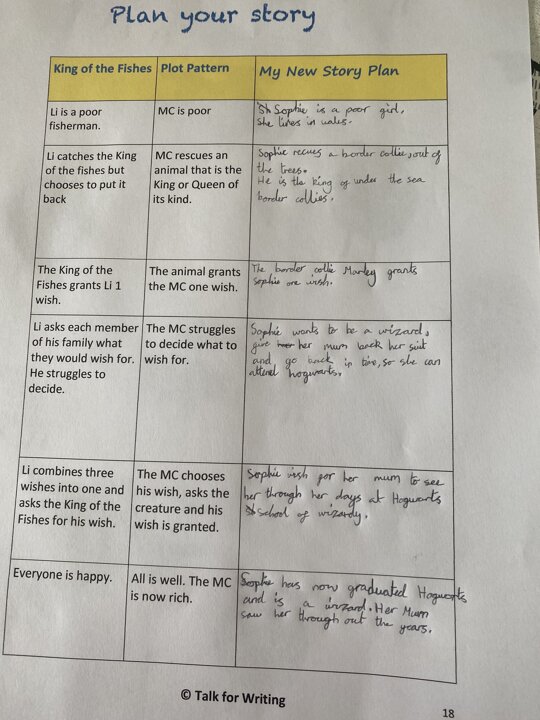 Plan your story
King of the Fishes
Plot Pattern
My New Story Plan
Li is a poor
fisherman.
MC is poor
Sophie is a poor girl.
She lives in wales.
Li catches the King
of the fishes but
chooses to put it
back
MC rescues an
animal that is the
King or Queen of
its kind.
Sophie recues a border collie, out of
the trees.
He is the king of under the sea
border collies.
The King of the
Fishes grants Li 1
wish.
The animal grants
the MC one wish.
The border collie Marley grants
Sophie one wish.
Li asks each member
of his family what
they would wish for.
He struggles to
decide.
The MC struggles
to decide what to
wish for.
Sophie wants to be a wizard,
give her mum back her
and go back in time, so she can
attend hogwarts.
Li combines three
wishes into one and
asks the King of the
Fishes for his wish.
The MC chooses
his wish, asks the
creature and his
wish is granted.
Sophie wish for her mum to see
her through her days at Hogwarts
School of wizardy.
Everyone is happy.
All is well. The MC
is now rich.
Sophie has now graduated Hogwarts
and is a wizard. Her Mum
saw her through out the years.
© Talk for Writing
18